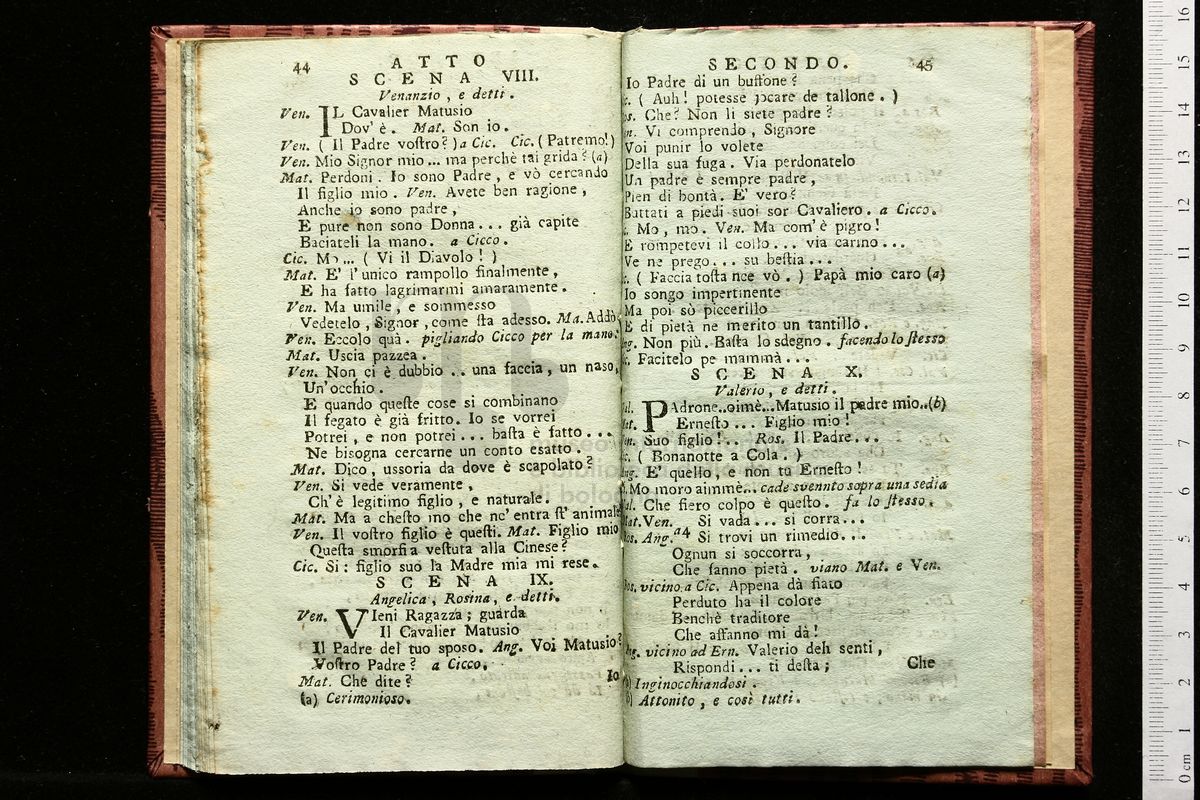 44
ATTO
SCENA VIII.
Venanzio, e detti.
Ven. IL Cavalier Matusio
Dov' è. Mat. Son io.
Ven. ( Il Padre vostro? ) a Cic. Cic. (Patremo!)
Ven. Mio Signor mio ... ma perchè tai grida? (a)
Mat. Perdoni. Io sono Padre, e vò cercando
Il figlio mio. Ven. Avete ben ragione,
Anche io sono padre,
E pure non sono Donna... già capite
Baciateli la mano. a Cicco.
Cic. Mo ... ( Vi il Diavolo! )
Mat. E' l'unico rampollo finalmente,
E ha fatto lagrimarmi amaramente.
Ven. Ma umile, e sommesso
Vedetelo, Signor, come sta adesso. Ma. Addò.
Ven. Eccolo quà. pigliando Cicco per la mano.
Mat. Uscia pazzea.
Ven. Non ci è dubbio .. una faccia, un naso,
Un'occhio.
E quando queste cose si combinano
Il fegato è già fritto. Io se vorrei
Potrei, e non potrei ... basta è fatto ...
Ne bisogna cercarne un conto esatto.
Mat. Dico, ussoria da dove è scapolato?
Ven. Si vede veramente,
Ch'è legitimo figlio, e naturale.
Mat. Ma a chesto mo che nc' entra st' animale
Ven. Il vostro figlio è questi. Mat. Figlio mio
Questa smorfia vestuta alla Cinese?
Cic. Si: figlio suo la Madre mia mi rese.
SCENA IX.
Angelica, Rosina, e detti.
Ven. VIeni Ragazza; guarda
Il Cavalier Matusio
Il Padre del tuo sposo. Ang. Voi Matusio?
Vostro Padre? a Cicco.
Mat. Che dite?
Io
(a) Cerimonioso.
SECONDO. 45
Io Padre di un buffone?
( Auh! potesse jocare de tallone. )
Che? Non li siete padre?
Vi comprendo, Signore
Voi punir lo volete
Della sua fuga. Via perdonatelo
Un padre è sempre padre,
Pien di bontà. E' vero?
Buttati a piedi suoi sor Cavaliero. a Cicco.
Mo, mo. Ven. Ma com' è pigro!
E rompetevi il collo... via carino...
Ve ne prego... su bestia...
( Faccia tosta nce vò. ) Papà mio caro (a)
Io songo impertinente
Ma poi sò piccerillo
E di pietà ne merito un tantillo.
Non più. Basta lo sdegno. facendo lo stesso
Facitelo pe mammà...
SCENA X.
Valerio, e detti.
PAdrone..oimè...Matusio il padre mio..(b)
Ernesto ... Figlio mio!
Suo figlio!.. Ros. Il Padre...
( Bonanotte a Cola. )
E' quello, e non tu Ernesto!
Mo moro aimmè... cade svennto sopra una sedia
Che fiero colpo è questo. fa lo stesso.
Mat. Ven. Si vada... si corra...
Ros. Ang. a4 Si trovi un rimedio...
Ognun si soccorra,
Che fanno pietà. viano Mat. e Ven.
Ros. vicino a Cic. Appena dà fiato
Perduto ha il colore
Benchè traditore
Che affanno mi dà!
Ang. vicino ad Ern. Valerio deh senti,
Rispondi... ti desta;
Che
(a) Inginocchiandosi.
(b) Attonito, e così tutti.